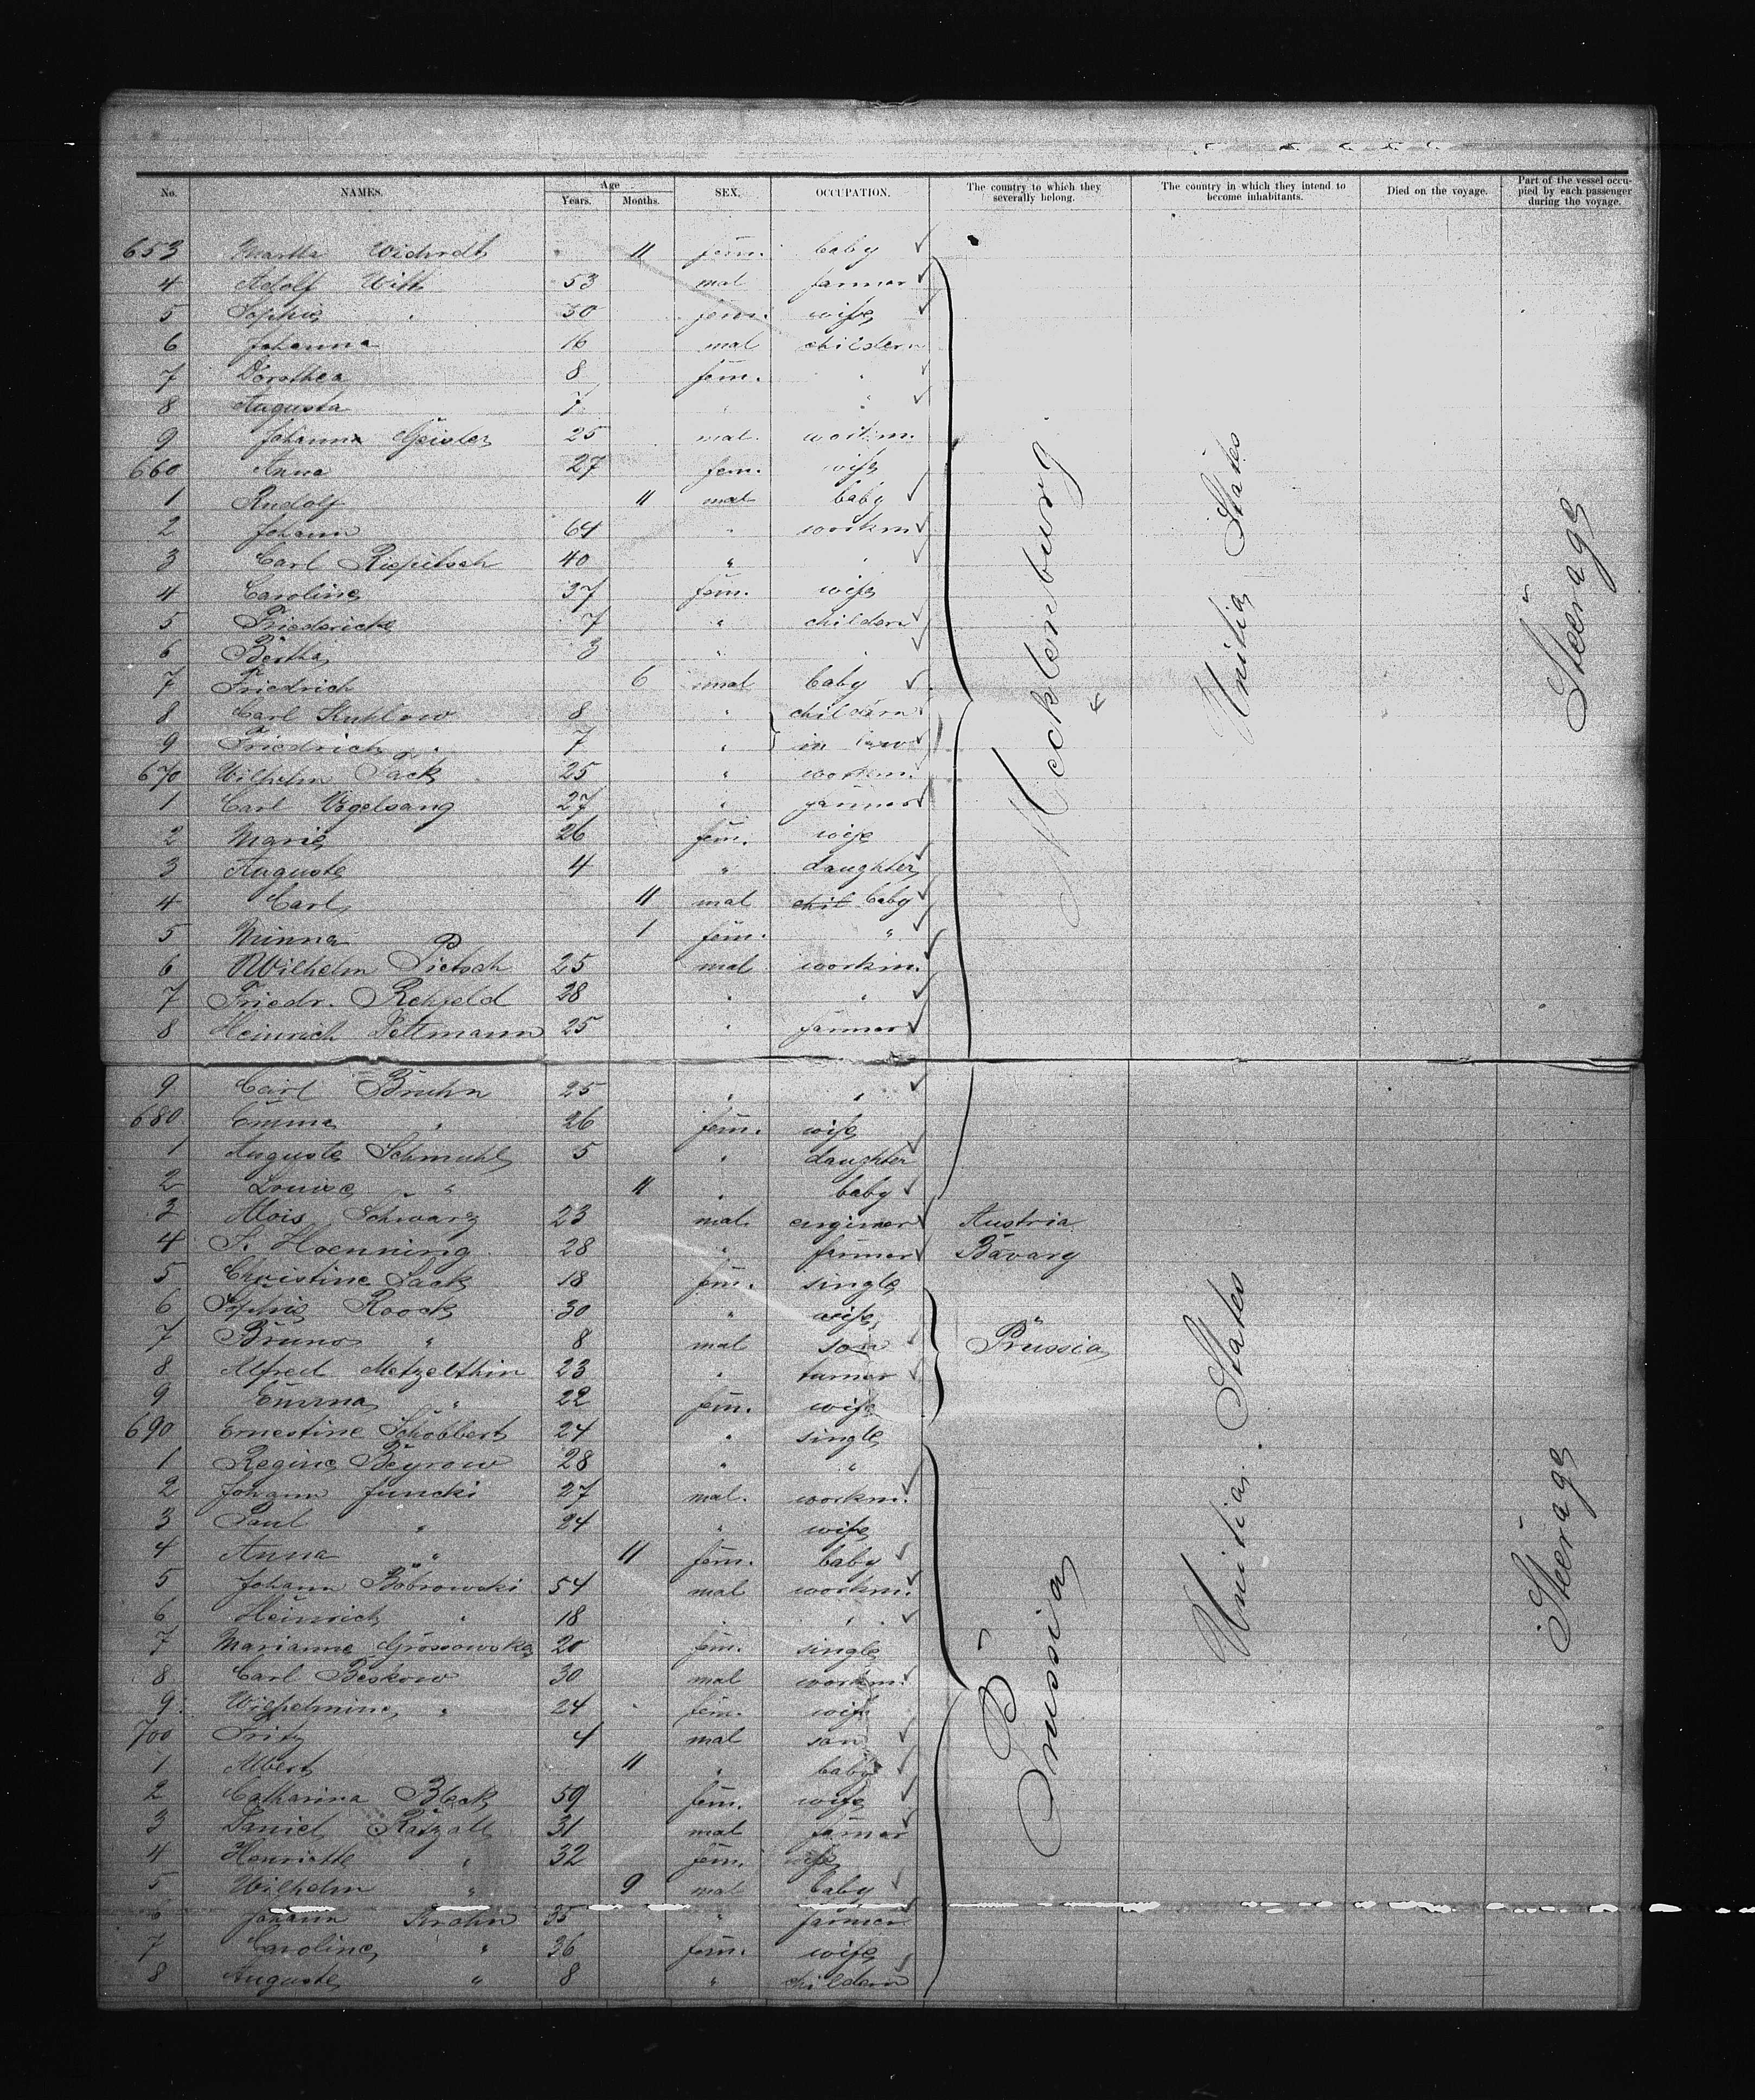 No. NAMES. Age Years. Months. SEX. OCCUPATION. The country to which they severally belong. The country in which they intend to become inhabitants. Died on the voyage. Part of the vessel occupied by each passenger during the voyage.
653 Martha 11 fem. baby
4 Adolf Witt 53 mal farmer
5 Sophie 50 fem. wife
6 Johanna 16 mal childern
7 Dorothea 8 fem.
8 Augusta 7
9 Johann Geisler 25 mal. workm.
660 Anna 27 fem. wife
1 Rudolf 11 mal baby
2 Johann 64 " workm
3 Carl 40 "
4 Caroline 37 fem. wife
5 Friedericke 7 " childern
6 Bertha 3 "
7 Friedrich 6 mal baby
8 Carl Kuhlow 8 " childern
9 Friedrich " 7 " in law
670 Wilhelm Sack 25 " workm.
1 Carl Vogelsang 27 " farmer
2 Marie 26 fem. wife
3 Auguste 4 " daughter
4 Carl 11 mal chil baby
5 Minna 1 fem. "
6 Wilhelm Pietsch 25 mal workm.
7 Friedr. Rehfeld 28 " "
8 Heinrich Dettmann 25 " farmer
Mecklenburg
Unitia States
Steerage
9 Carl Bruhn 25 " "
680 Emma " 26 fem. wife
1 Auguste Schmuhl 5 " daughter
2 Louise " 11 " baby
3 Alois Schwarz 23 mal. enginer Austria
4 S. Hoenning 28 " farmer Bavary
5 Christine Sack 18 fem. single
6 Sophie Roock 30 " wife
7 Bruno " 8 mal son Prussia
8 Alfred Metzelthin 23 " turner
9 Emma " 22 fem. wife
690 Ernestine Schobbert 24 " single
1 Regine Beyrow 28 " "
2 Johann Juncki 27 mal. workm.
3 Paul " 24 " wife
4 Anna " 11 fem. baby
5 Johann Bobrowski 54 mal workm.
6 Heinrich " 18 " "
7 Marianne 20 fem. single
8 Carl Beskow 30 mal workm.
9 Wilhelmine " 24 fem. wife
700 Fritz 4 mal son
1 Albert 11 " baby
2 Catharina Block 59 fem. wife
3 Daniel Ratzall 31 mal farmer
4 Henriette " 32 fem. wife
5 Wilhelm " 9 mal baby
6 Johann Krohn 35 " farmer
7 Caroline " 36 fem. wife
8 Auguste " 8 " childern
Prussia
Unitia States
Steerage